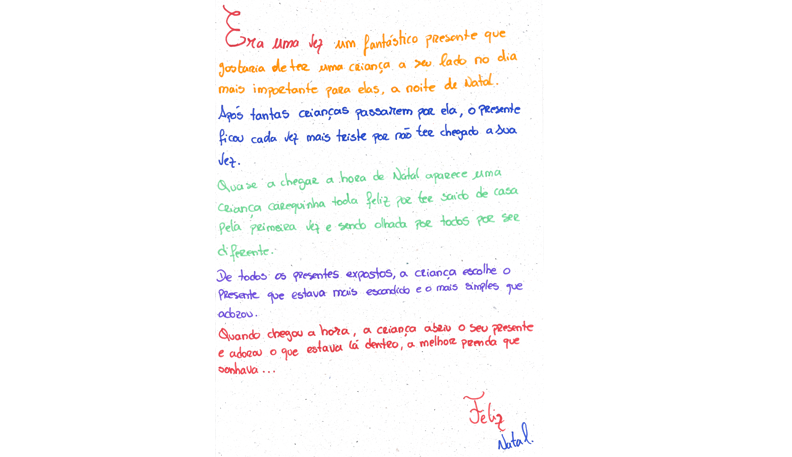 Era uma vez um fantástico presente que
gostaria de ter uma criança a seu lado no dia
mais importante para elas, a noite de Natal.
Após tantas crianças passarem por ela, o presente
ficou cada vez mais triste por não ter chegado a sua
vez.
Quase a chegar a hora de Natal aparece uma
criança carequinha toda feliz por ter saido de casa
pela primeira vez e sendo olhada por todos por ser
diferente.
De todos os presentes expostos, a criança escolhe o
presente que estava mais escondido e o mais simples que
adorou.
Quando chegou a hora, a criança abriu o seu presente
e adorou o que estava lá dentro, a melhor prenda que
sonhava...
Feliz
Natal.